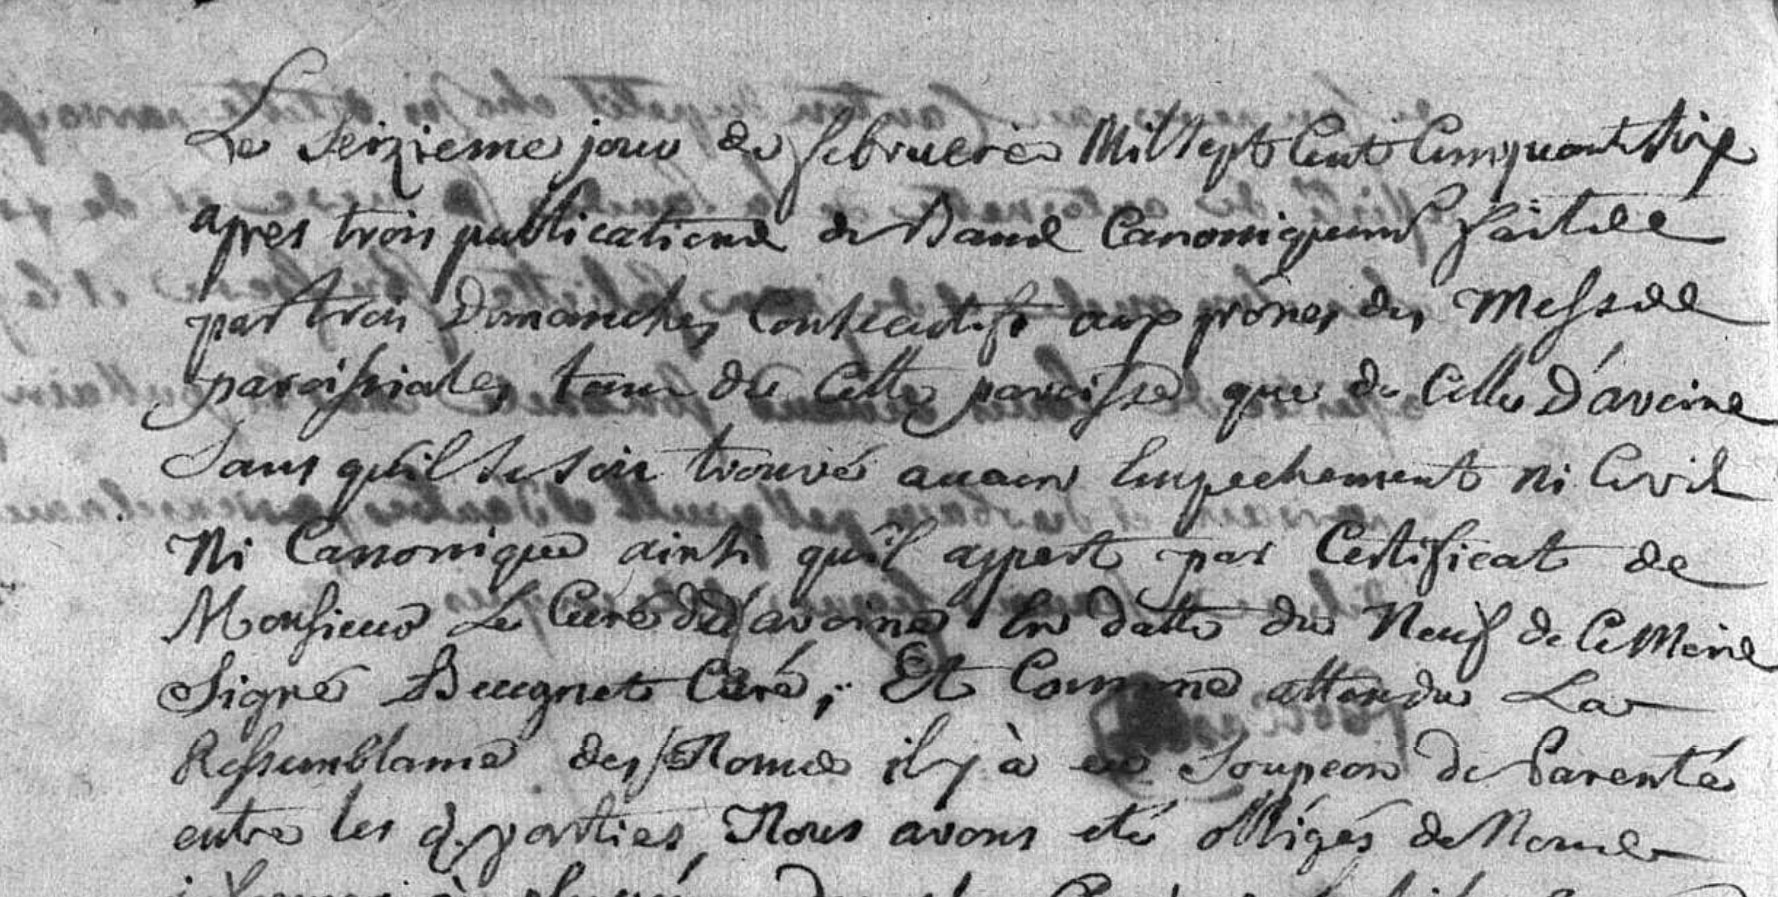 Le Seizieme jour de febvriere Mil Sept Cent Cinquante Six
apres trois publications de Bans Canoniquement faites
par trois Dimanches Consecutifs aux prônes des Messes
paroissiales tant de Cette paroisse que de Celle D'avoine
Sans qu'il se soit trouvé aucun Empechement ni Civil
Ni Canonique ainsi qu'il appert par Certificat de
Monsieur Le Curé d'avoine En datte du Neuf de Ce Mois
Signé Beugnet Curé, Et Comme attendu La
Ressemblance des Noms il y à eu Soupcon de Parenté
entre les d. parties, Nous avons eté obligés de Nous